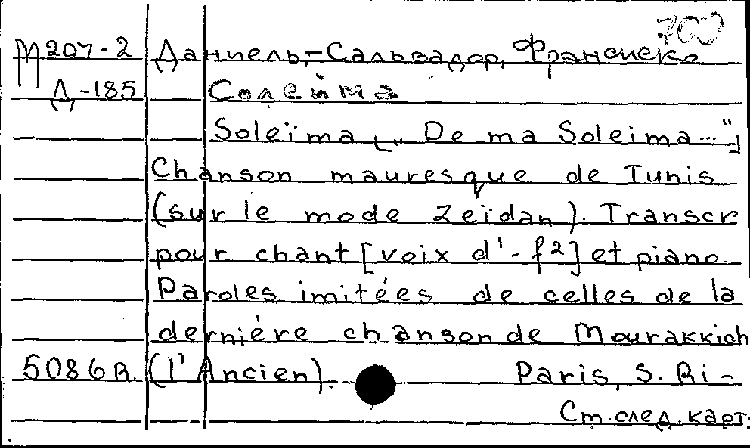 700
М207-2 Даниель-Сальвадор, Франсиско
Д-185 Солейма
Soleïma [„De ma Soleima..."]
Chanson mauresque de Tunis
(sur le mode Zeïdan). Transcr
pour chant [voix d'-f²] et piano
Paroles imitées de celles de la
dernière chanson de Mourakkich
5086В (l'Ancien). Paris, S. Ri-
См. след. карт.